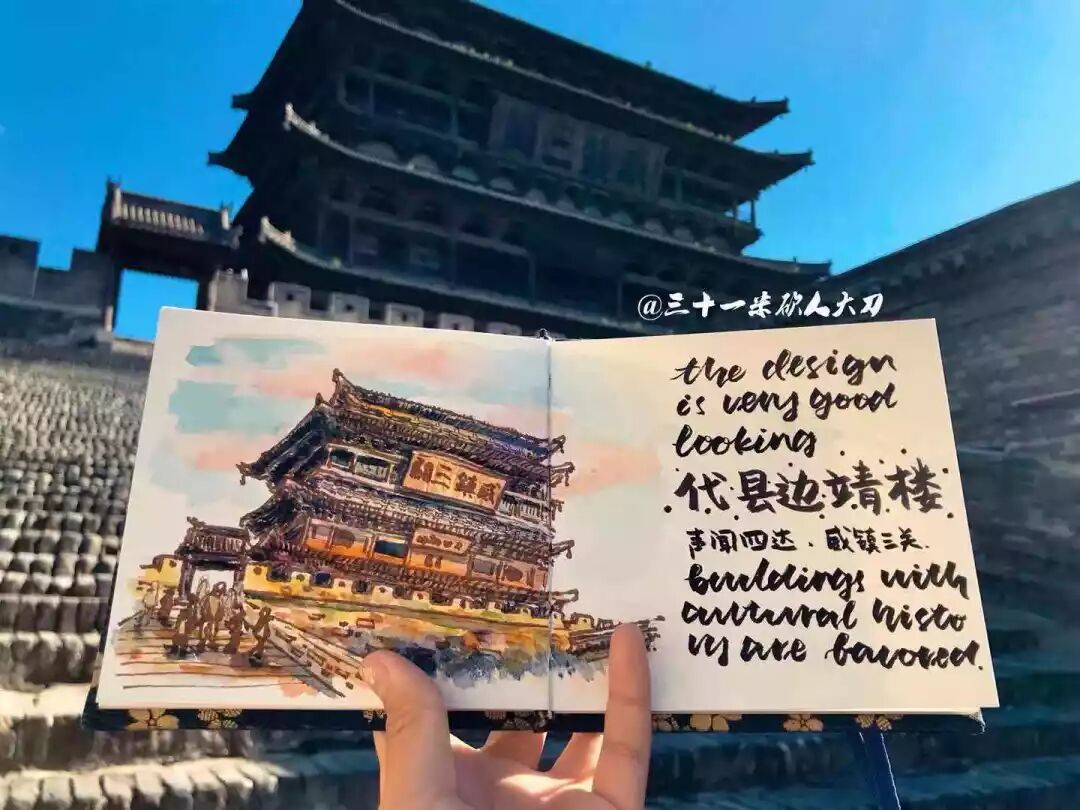 @三十一柒砍人大刀
the design
is very good
looking
代县边靖楼
声闻四达·威镇三关.
buildings with
cultural histo
ry are bavored.
威鎮三關